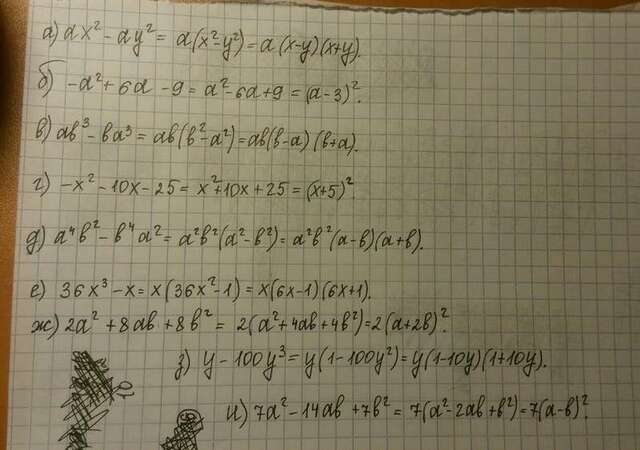 а) ax² - ay² = a(x²-y²) = a(x-y)(x+y).
б) -a² + 6a - 9 = a² - 6a + 9 = (a-3)².
в) ab³ - ba³ = ab(b²-a²) = ab(b-a)(b+a).
г) -x² - 10x - 25 = x² + 10x + 25 = (x+5)².
д) a⁴b² - b⁴a² = a²b²(a²-b²) = a²b²(a-b)(a+b).
е) 36x³ - x = x(36x²-1) = x(6x-1)(6x+1).
ж) 2a² + 8ab + 8b² = 2(a²+4ab+4b²) = 2(a+2b)².
з) y - 100y³ = y(1-100y²) = y(1-10y)(1+10y).
и) 7a² - 14ab + 7b² = 7(a²-2ab+b²) = 7(a-b)².